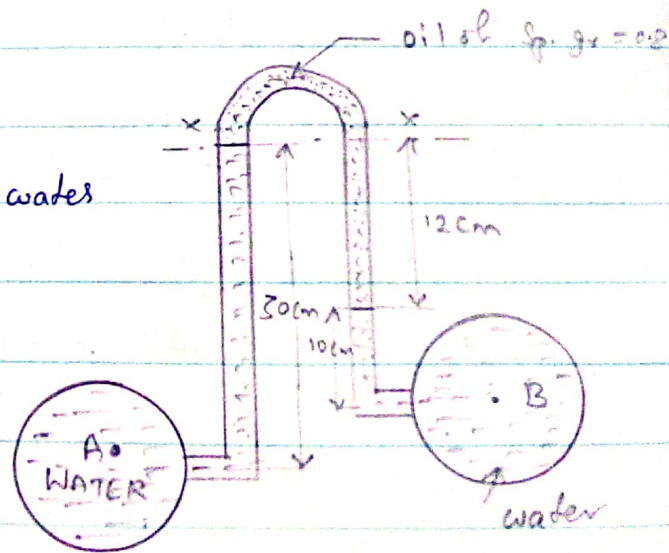 oil of Sp. gr = 0.8
x x
water
12 cm
30cm
10cm
A
WATER
B
water